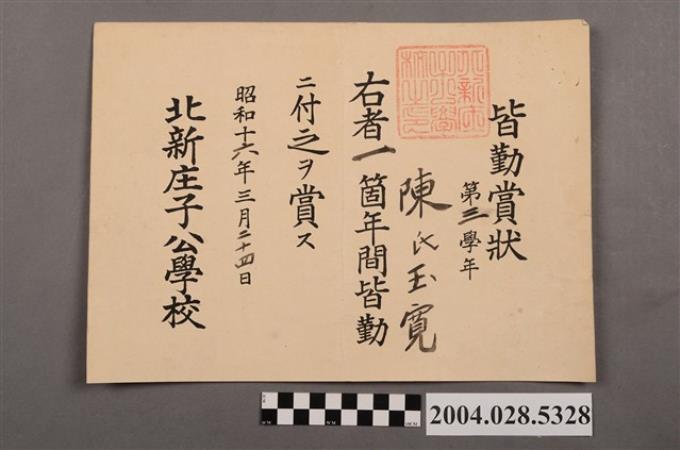 皆勤賞狀
第三學年
陳氏玉寬
右者一箇年間皆勤
ニ付之ヲ賞ス
昭和十六年三月二十四日
北新庄子公學校
2004.028.5328